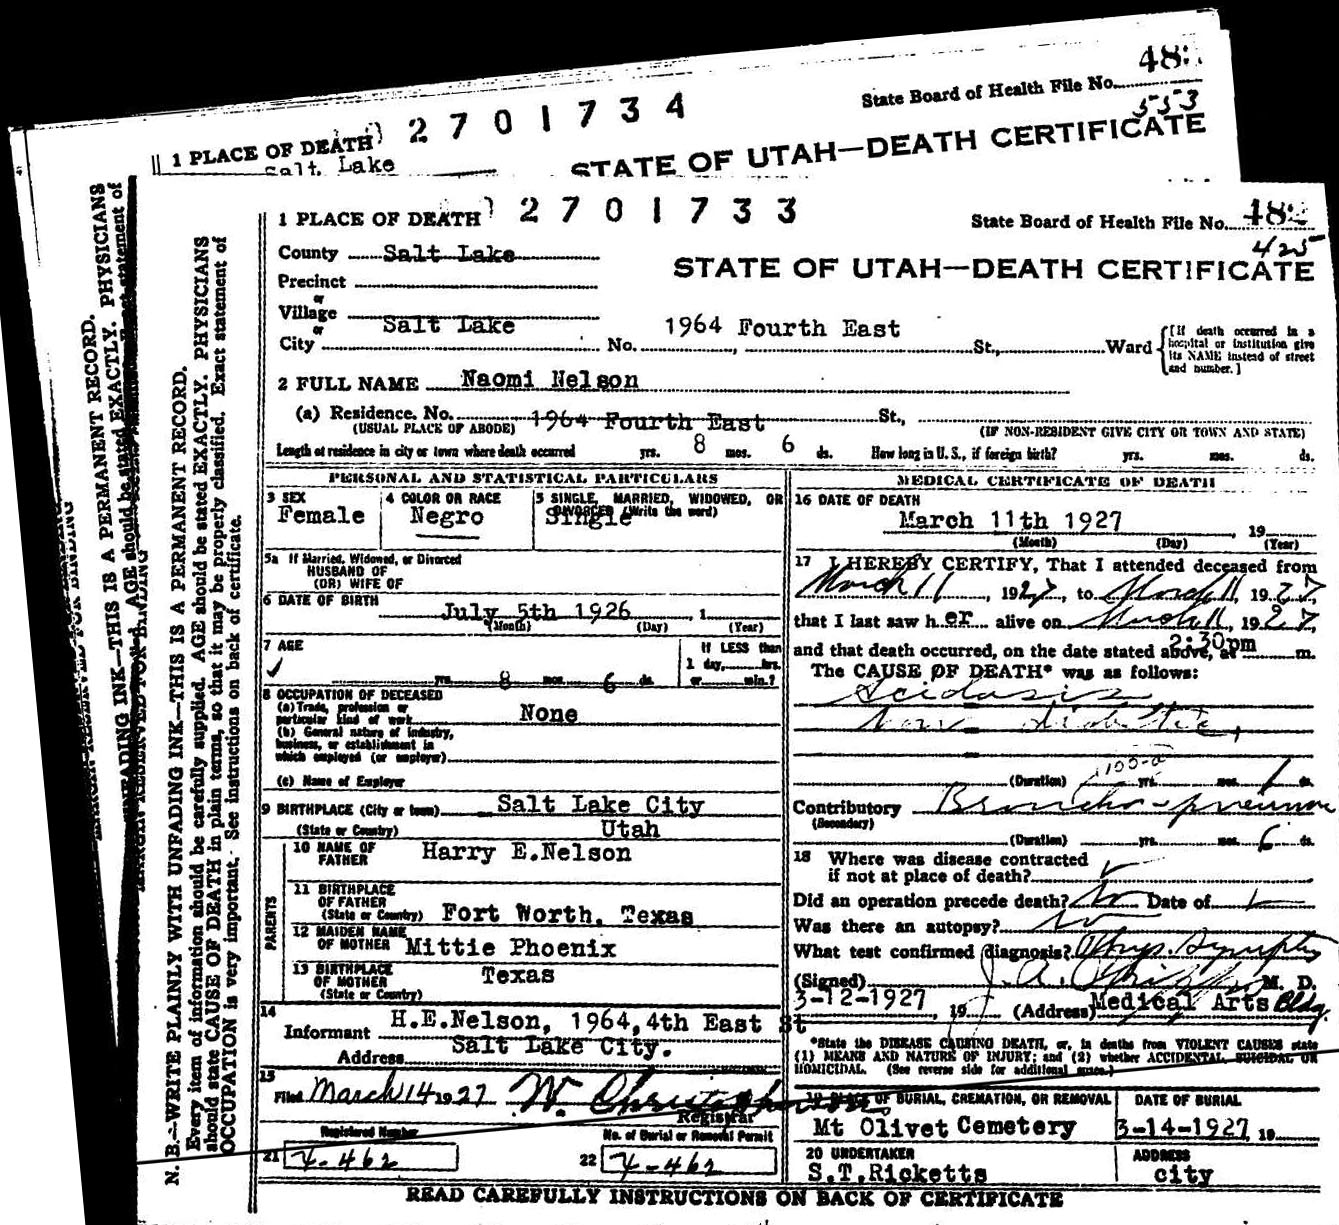 48
State Board of Health File No.
553
2701734
1 PLACE OF DEATH
STATE OF UTAH—DEATH CERTIFICATE
Salt Lake
1 PLACE OF DEATH 2701733
State Board of Health File No. 482
425
County Salt Lake
STATE OF UTAH—DEATH CERTIFICATE
Precinct
or
Village
or
Salt Lake 1964 Fourth East
City No. St., Ward
[If death occurred in a hospital or institution give its NAME instead of street and number.]
2 FULL NAME Naomi Nelson
(a) Residence. No. 1964 Fourth East St.,
(USUAL PLACE OF ABODE) (IF NON-RESIDENT GIVE CITY OR TOWN AND STATE)
Length of residence in city or town where death occurred yrs. 8 mos. 6 ds. How long in U. S., if foreign birth? yrs. mos. ds.
PERSONAL AND STATISTICAL PARTICULARS
3 SEX 4 COLOR OR RACE 5 SINGLE, MARRIED, WIDOWED, OR
DIVORCED (Write the word)
Female Negro Single
5a If Married, Widowed, or Divorced
HUSBAND OF
(OR) WIFE OF
6 DATE OF BIRTH
July 5th 1926 , 1
(Month) (Day) (Year)
7 AGE If LESS than
1 day, hrs.
yrs. 8 mos. 6 ds. or min.?
8 OCCUPATION OF DECEASED
(a) Trade, profession or
particular kind of work None
(b) General nature of industry,
business, or establishment in
which employed (or employer)
(c) Name of Employer
9 BIRTHPLACE (City or town) Salt Lake City
(State or Country) Utah
PARENTS
10 NAME OF
FATHER Harry E.Nelson
11 BIRTHPLACE
OF FATHER
(State or Country) Fort Worth, Texas
12 MAIDEN NAME
OF MOTHER Mittie Phoenix
13 BIRTHPLACE
OF MOTHER
(State or Country) Texas
14
Informant H.E.Nelson, 1964,4th East St
Address Salt Lake City.
15
Filed March 14 1927 W. Christopherson
Registrar
Registered Number No. of Burial or Removal Permit
21 4-462 22 4-462
MEDICAL CERTIFICATE OF DEATH
16 DATE OF DEATH
March 11th 1927 , 19
(Month) (Day) (Year)
17 I HEREBY CERTIFY, That I attended deceased from
March 11, 1927, to March 11, 1927,
that I last saw her alive on March 11, 1927,
and that death occurred, on the date stated above, at 2:30pm m.
The CAUSE OF DEATH* was as follows:
Acidosis
Non diabetic,
(Duration) yrs. mos. 1 ds.
Contributory Broncho-pneumonia
(Secondary)
(Duration) yrs. mos. 6 ds.
18 Where was disease contracted
if not at place of death?
Did an operation precede death? No Date of
Was there an autopsy? No
What test confirmed diagnosis? Phys. Symptoms
(Signed) J. A. M. D.
3-12-1927 , 19 (Address) Medical Arts Bldg.
*State the DISEASE CAUSING DEATH, or, in deaths from VIOLENT CAUSES state
(1) MEANS AND NATURE OF INJURY; and (2) whether ACCIDENTAL, SUICIDAL OR
HOMICIDAL. (See reverse side for additional space.)
19 PLACE OF BURIAL, CREMATION, OR REMOVAL DATE OF BURIAL
Mt Olivet Cemetery 3-14-1927, 19
20 UNDERTAKER ADDRESS
S.T.Ricketts city
READ CAREFULLY INSTRUCTIONS ON BACK OF CERTIFICATE
N. B.—WRITE PLAINLY WITH UNFADING INK—THIS IS A PERMANENT RECORD.
Every item of information should be carefully supplied. AGE should be stated EXACTLY. PHYSICIANS
should state CAUSE OF DEATH in plain terms, so that it may be properly classified. Exact statement of
OCCUPATION is very important. See instructions on back of certificate.
UNFADING INK—THIS IS A PERMANENT RECORD.
AGE should be stated EXACTLY. PHYSICIANS